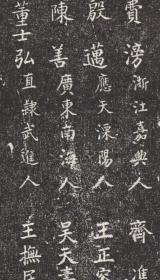 費滂浙江嘉興人 齊進
殷邁應天溧陽人 王正容
陳善廣東南海人 吳天壽
董士弘直隸武進人 王撫民